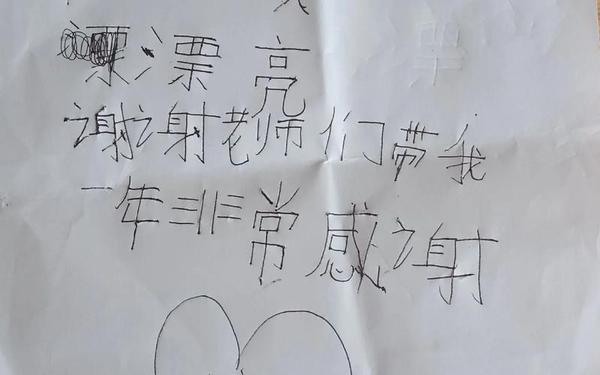 漂漂亮
谢谢老师们带我
一年非常感谢